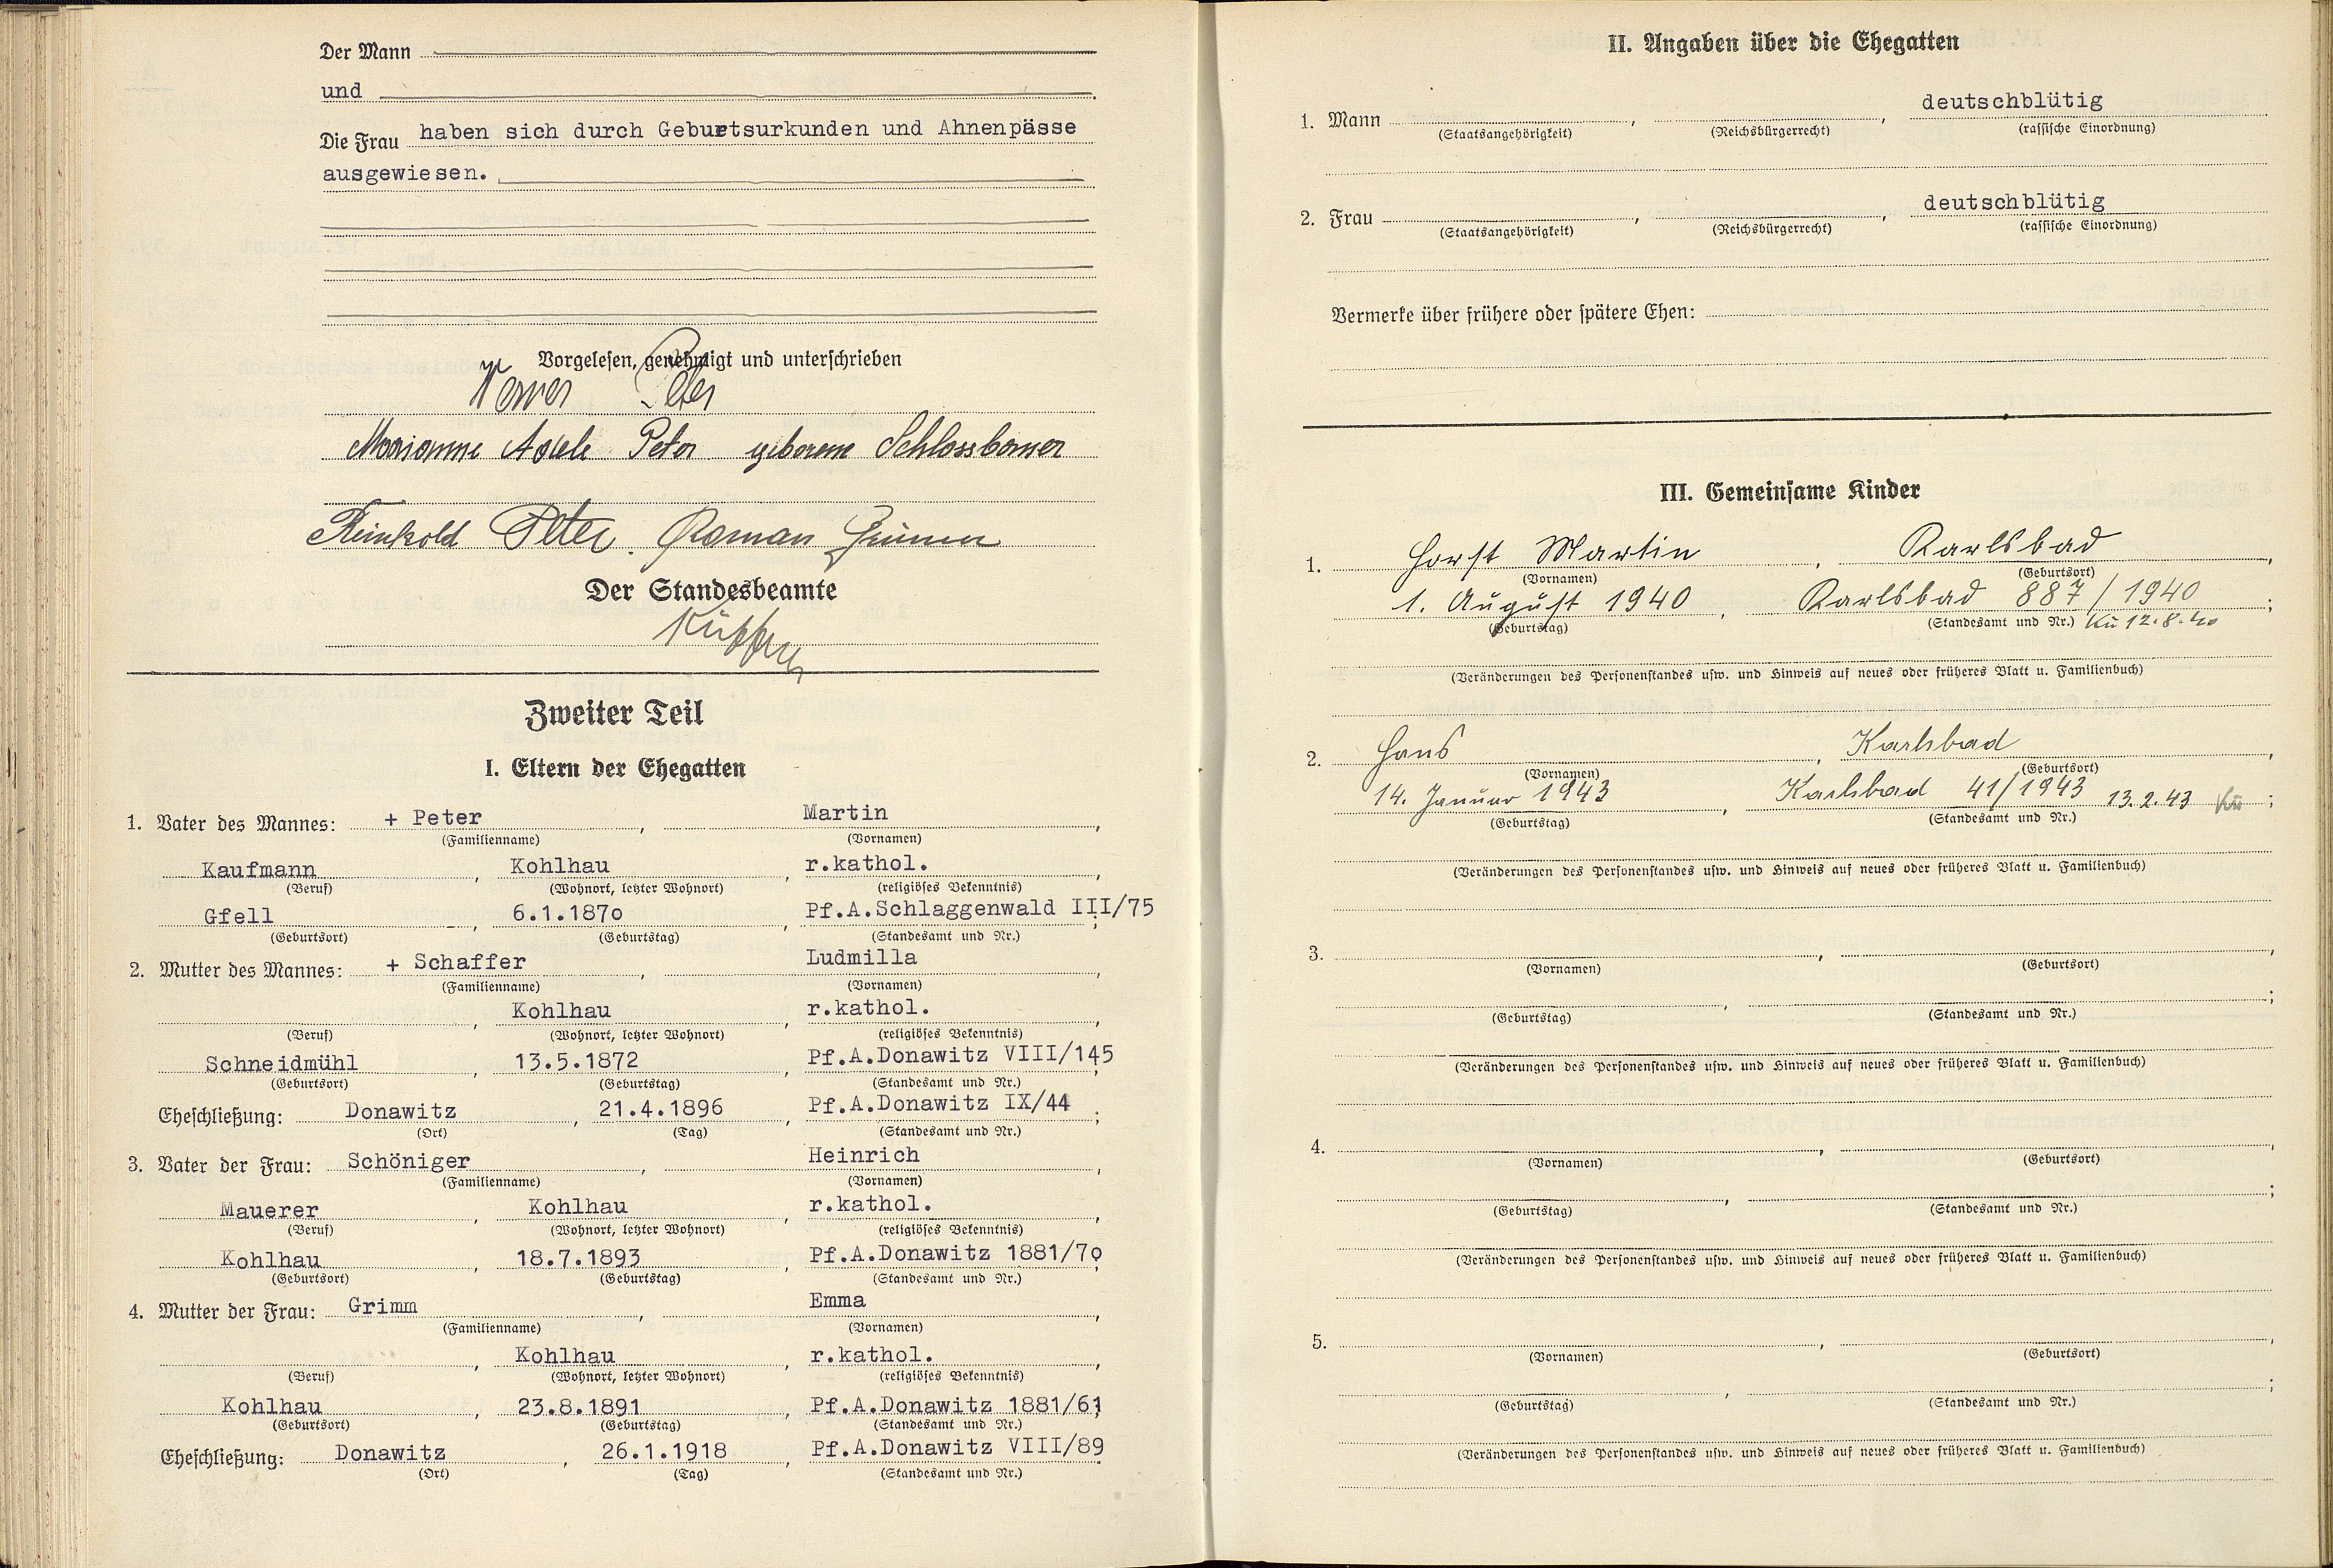 Der Mann
und
Die Frau haben sich durch Geburtsurkunden und Ahnenpässe
ausgewiesen.
Vorgelesen, genehmigt und unterschrieben
Peter
Marianne Adele Peter geborene
Reinhold Peter. Roman
Der Standesbeamte
Zweiter Teil
I. Eltern der Ehegatten
1. Vater des Mannes: + Peter , Martin ,
(Familienname) (Vornamen)
Kaufmann , Kohlhau , r.kathol. ,
(Beruf) (Wohnort, letzter Wohnort) (religiöses Bekenntnis)
Gfell , 6.1.187o , Pf.A.Schlaggenwald III/75 ;
(Geburtsort) (Geburtstag) (Standesamt und Nr.)
2. Mutter des Mannes: + Schaffer , Ludmilla ,
(Familienname) (Vornamen)
, Kohlhau , r.kathol. ,
(Beruf) (Wohnort, letzter Wohnort) (religiöses Bekenntnis)
Schneidmühl , 13.5.1872 , Pf.A.Donawitz VIII/145 ;
(Geburtsort) (Geburtstag) (Standesamt und Nr.)
Eheschließung: Donawitz , 21.4.1896 , Pf.A.Donawitz IX/44 ;
(Ort) (Tag) (Standesamt und Nr.)
3. Vater der Frau: Schöniger , Heinrich ,
(Familienname) (Vornamen)
Mauerer , Kohlhau , r.kathol. ,
(Beruf) (Wohnort, letzter Wohnort) (religiöses Bekenntnis)
Kohlhau , 18.7.1893 , Pf.A.Donawitz 1881/7o ;
(Geburtsort) (Geburtstag) (Standesamt und Nr.)
4. Mutter der Frau: Grimm , Emma ,
(Familienname) (Vornamen)
, Kohlhau , r.kathol. ,
(Beruf) (Wohnort, letzter Wohnort) (religiöses Bekenntnis)
Kohlhau , 23.8.1891 , Pf.A.Donawitz 1881/61 ;
(Geburtsort) (Geburtstag) (Standesamt und Nr.)
Eheschließung: Donawitz , 26.1.1918 , Pf.A.Donawitz VIII/89
(Ort) (Tag) (Standesamt und Nr.)
II. Angaben über die Ehegatten
1. Mann , , deutschblütig
(Staatsangehörigkeit) (Reichsbürgerrecht) (rassische Einordnung)
2. Frau , , deutschblütig
(Staatsangehörigkeit) (Reichsbürgerrecht) (rassische Einordnung)
Vermerke über frühere oder spätere Ehen:
III. Gemeinsame Kinder
1. Horst Martin , Karlsbad ,
(Vornamen) (Geburtsort)
1. August 1940 , Karlsbad 887/1940 ;
(Geburtstag) (Standesamt und Nr.) Kü 12.8.40
(Veränderungen des Personenstandes usw. und Hinweis auf neues oder früheres Blatt u. Familienbuch)
2. Hans , Karlsbad ,
(Vornamen) (Geburtsort)
14. Januar 1943 , Karlsbad 41/1943 13.2.43 Kü ;
(Geburtstag) (Standesamt und Nr.)
(Veränderungen des Personenstandes usw. und Hinweis auf neues oder früheres Blatt u. Familienbuch)
3. , ,
(Vornamen) (Geburtsort)
, ;
(Geburtstag) (Standesamt und Nr.)
(Veränderungen des Personenstandes usw. und Hinweis auf neues oder früheres Blatt u. Familienbuch)
4. , ,
(Vornamen) (Geburtsort)
, ;
(Geburtstag) (Standesamt und Nr.)
(Veränderungen des Personenstandes usw. und Hinweis auf neues oder früheres Blatt u. Familienbuch)
5. , ,
(Vornamen) (Geburtsort)
, ;
(Geburtstag) (Standesamt und Nr.)
(Veränderungen des Personenstandes usw. und Hinweis auf neues oder früheres Blatt u. Familienbuch)